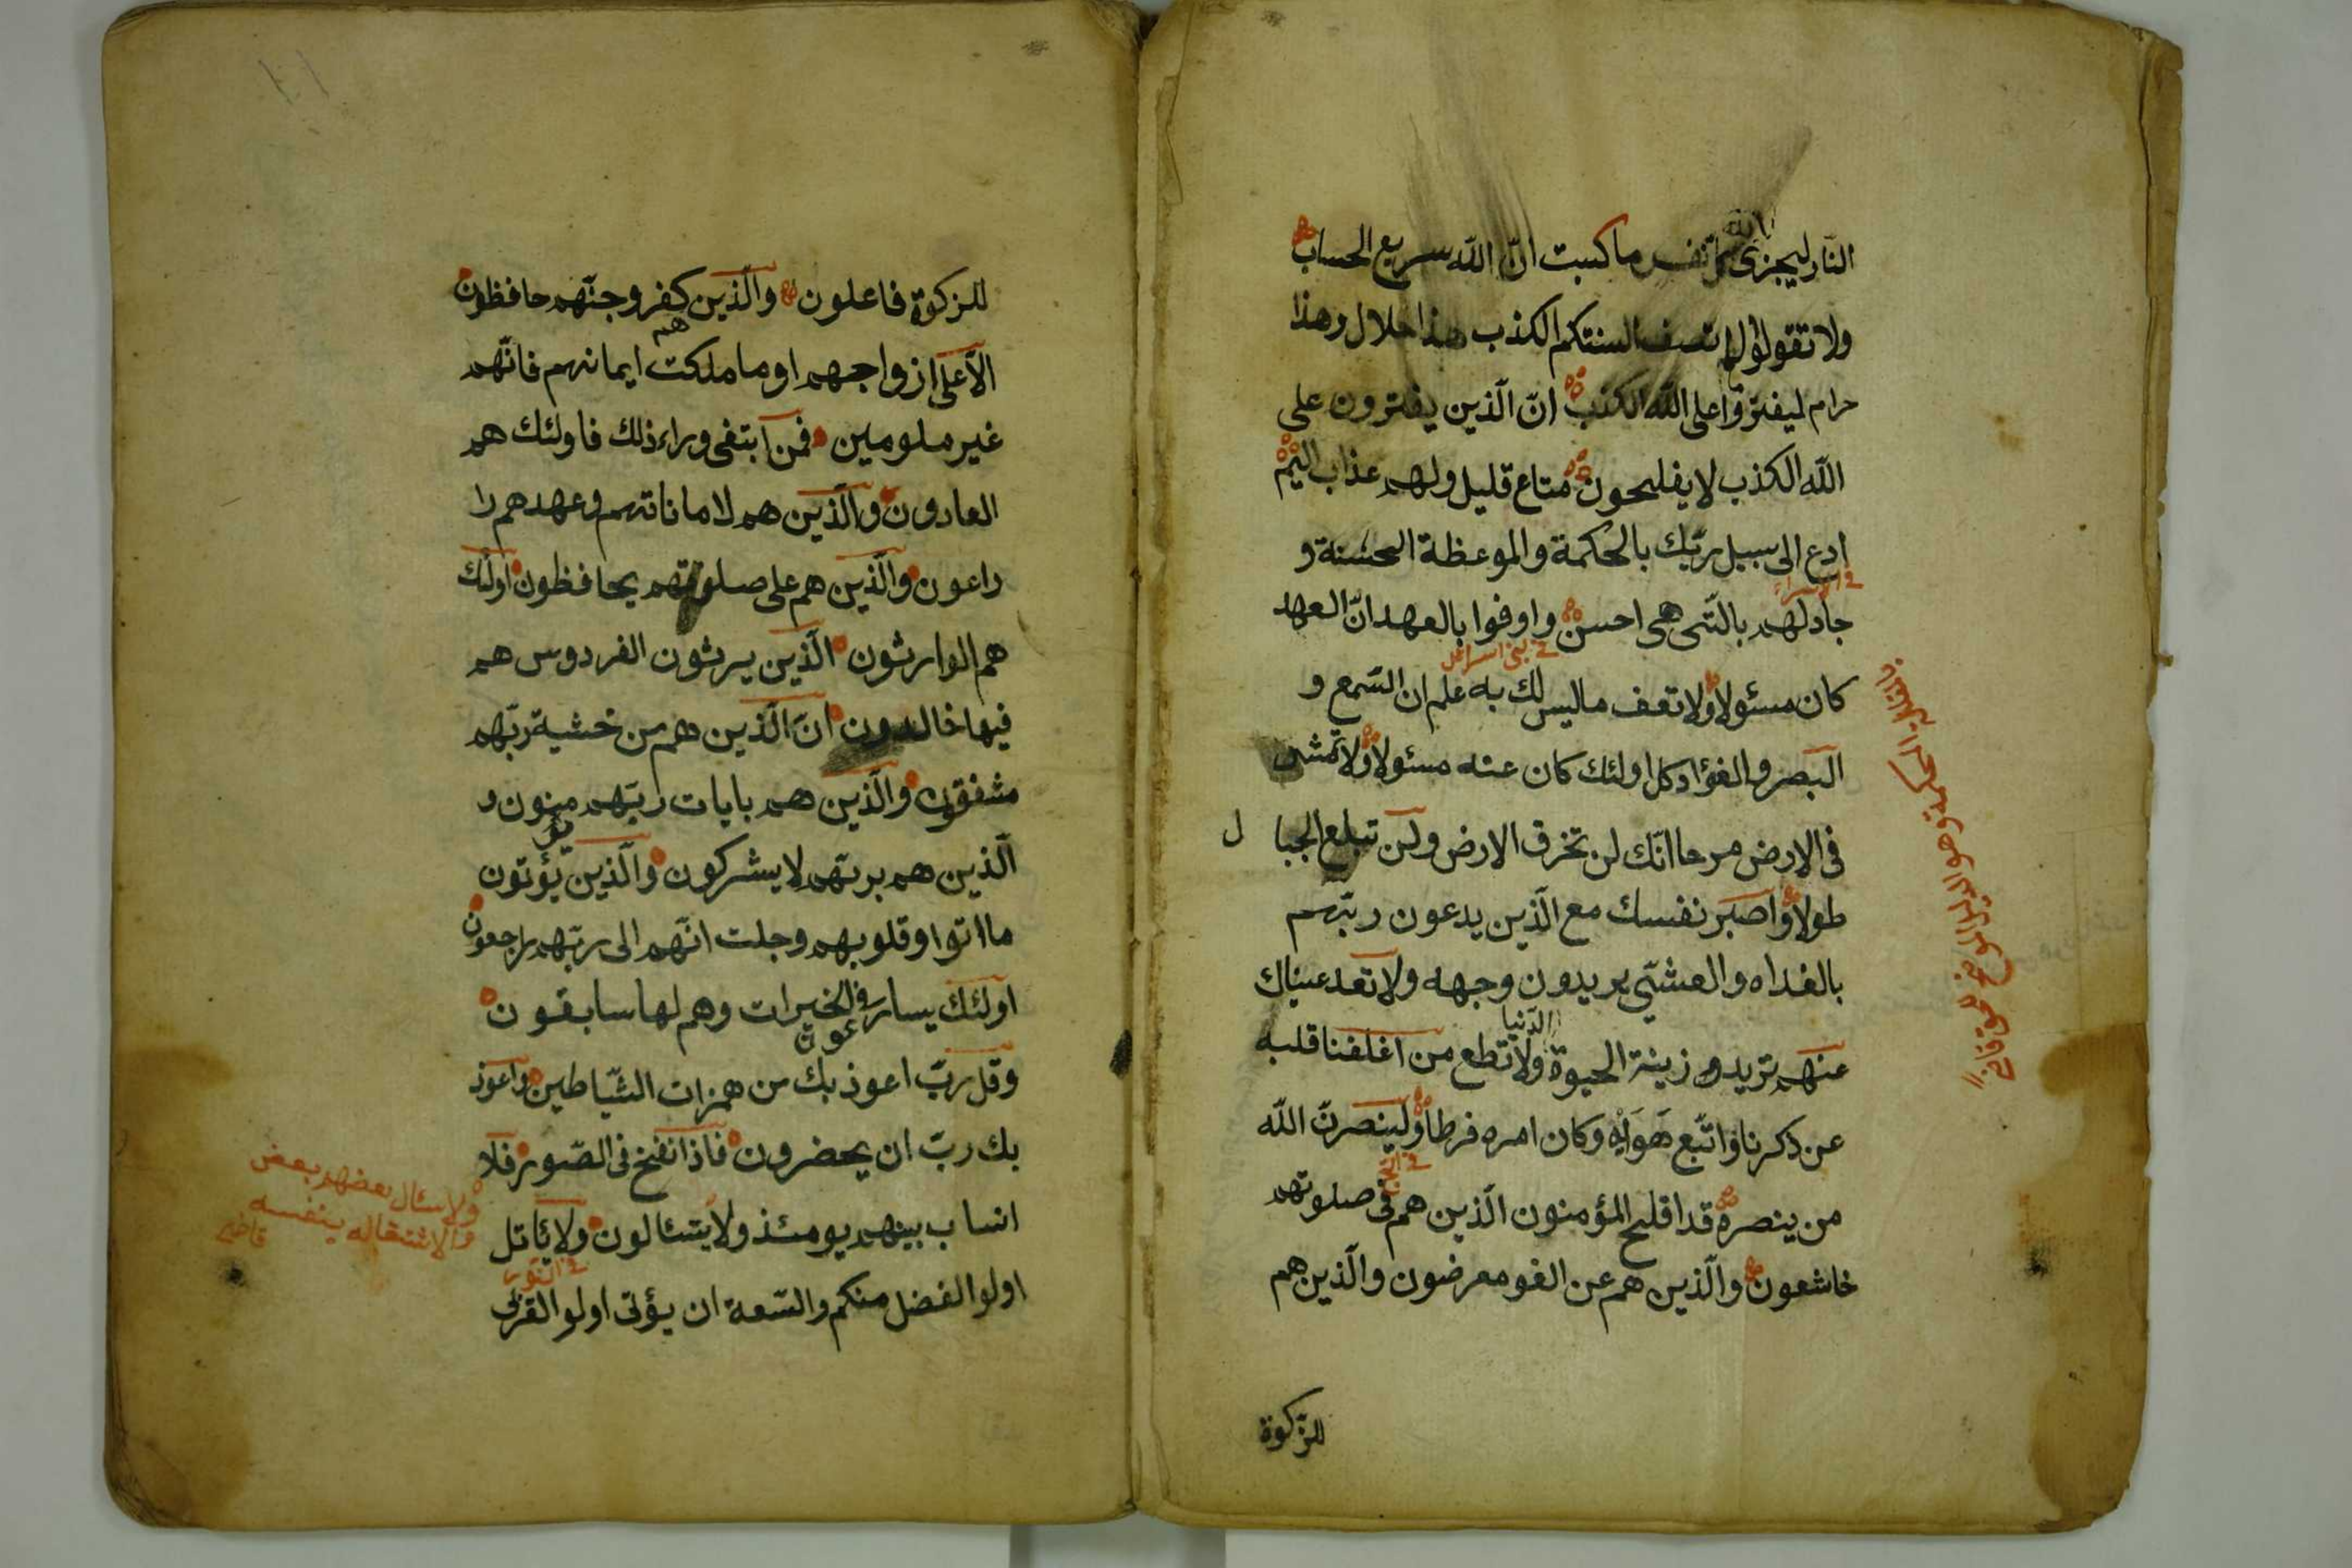 النّار ليجزى الله كلّ نفس ما كسبت انّ الله سريع الحساب
ولا تقولوا لما تصف السنتكم الكذب هذا حلال وهذا
حرام ليفتروا على الله الكذب انّ الّذين يفترون على
الله الكذب لا يفلحون متاع قليل ولهم عذاب اليم
ادع الى سبيل ربّك بالحكمة والموعظة الحسنة و
جادلهم بالّتى هى احسن واوفوا بالعهد انّ العهد
فى بنى اسرائيل
كان مسئولا ولا تقف ماليس لك به علم ان السّمع و
البصر والفؤاد كل اولئك كان عنه مسئولا ولا تمش
فى الارض مرحا انّك لن تخرق الارض ولن تبلغ الجبال
طولا واصبر نفسك مع الّذين يدعون ربّهم
بالغداه والعشىّ يريدون وجهه ولا تعد عيناك
عنهم تريد زينة الحيوة الدّنيا ولا تطع من اغلفنا قلبه
عن ذكرنا واتّبع هَوَيْه وكان امره فرطا ولينصرنّ الله
من ينصره قد افلح المؤمنون الّذين هم فى صلوتهم
خاشعون والّذين هم عن الغو معرضون والّذين هم
للزّكوة
للزكوة فاعلون والّذين هم كفروجنّهم حافظون
الّا على ازواجهم او ما ملكت ايمانهم فانّهم
غير ملومين فمن ابتغى وراء ذلك فاولئك هم
العادون والّذين هم لاماناتهم وعهدهم را
راعون والّذين هم على صلوتهم يحافظون اولئك
هم الوارثون الّذين يرثون الفردوس هم
فيها خالدون انّ الّذين هم من خشية ربّهم
مشفقون والّذين هم بايات ربّهم يؤمنون و
الّذين هم بربّهم لا يشركون والّذين يؤتون
ما اتوا وقلوبهم وجلت انّهم الى ربّهم راجعون
اولئك يسارعون فى الخيرات وهم لها سابقون
وقل ربّ اعوذ بك من همزات الشّياطين واعوذ
بك ربّ ان يحضرون فاذا نفخ فى الصّور فلا
انساب بينهم يومئذ ولا يتسئالون ولا يأتل
فى النّور
اولوا الفضل منكم والسّعة ان يؤتى اولوا القربى
ولا يسئال بعضهم بعض
والاشتقاله بنفسه
قاضى